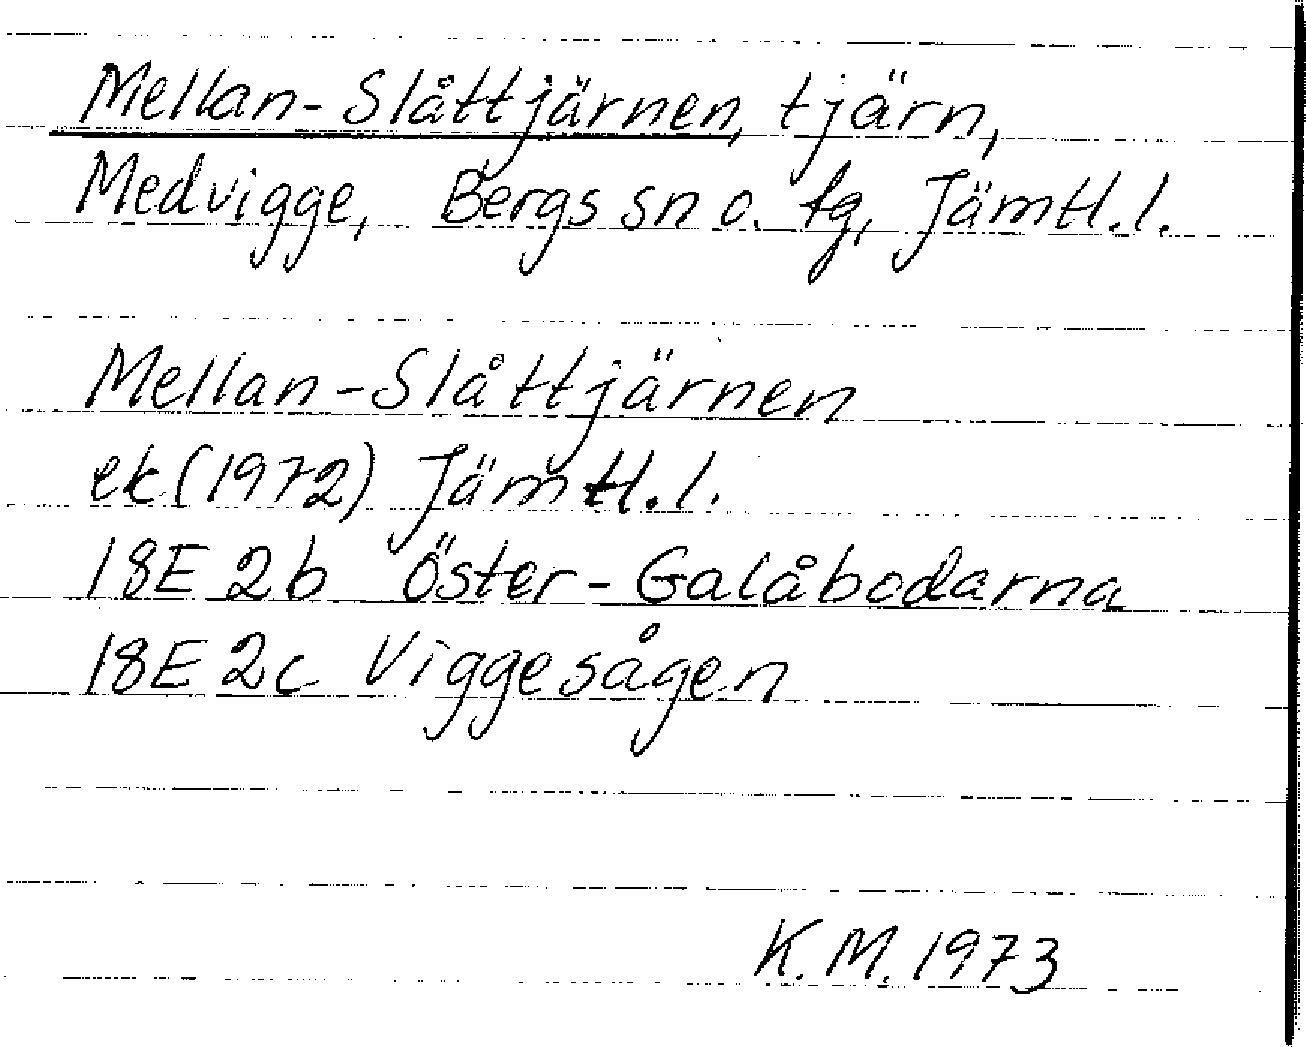 Mellan-Slåttjärnen, tjärn,
Medvigge, Bergs sn o. tg, Jämtl. l.
Mellan-Slåttjärnen
ek (1972) Jämtl. l.
18E 2b Öster-Galåbodarna
18E 2c Viggesågen
K. M. 1973